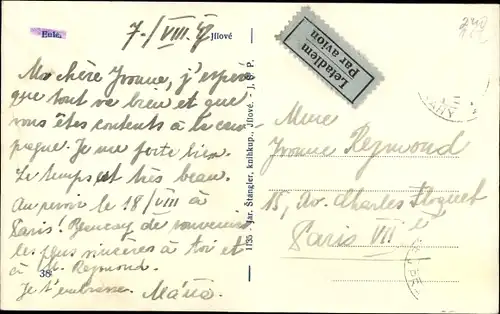 Eule.
7./VIII. 47
Jílové
Ma chère Yvonne, j'espère
que tout va bien et que
vous êtes contents à la cam
pagne. Je me porte bien.
Le temps est très beau.
Au revoir le 18/VIII à
Paris! Beaucoup de souvenirs
les plus sincères à toi et
à M. Rejmond.
38
Je t'embrasse. Máňa
1155 Jar. Štangler, knihkup., Jílové. - J. P.
Letadlem
Par avion
Mme
Yvonne Rejmond
15, Av. Charles Floquet
Paris VII e